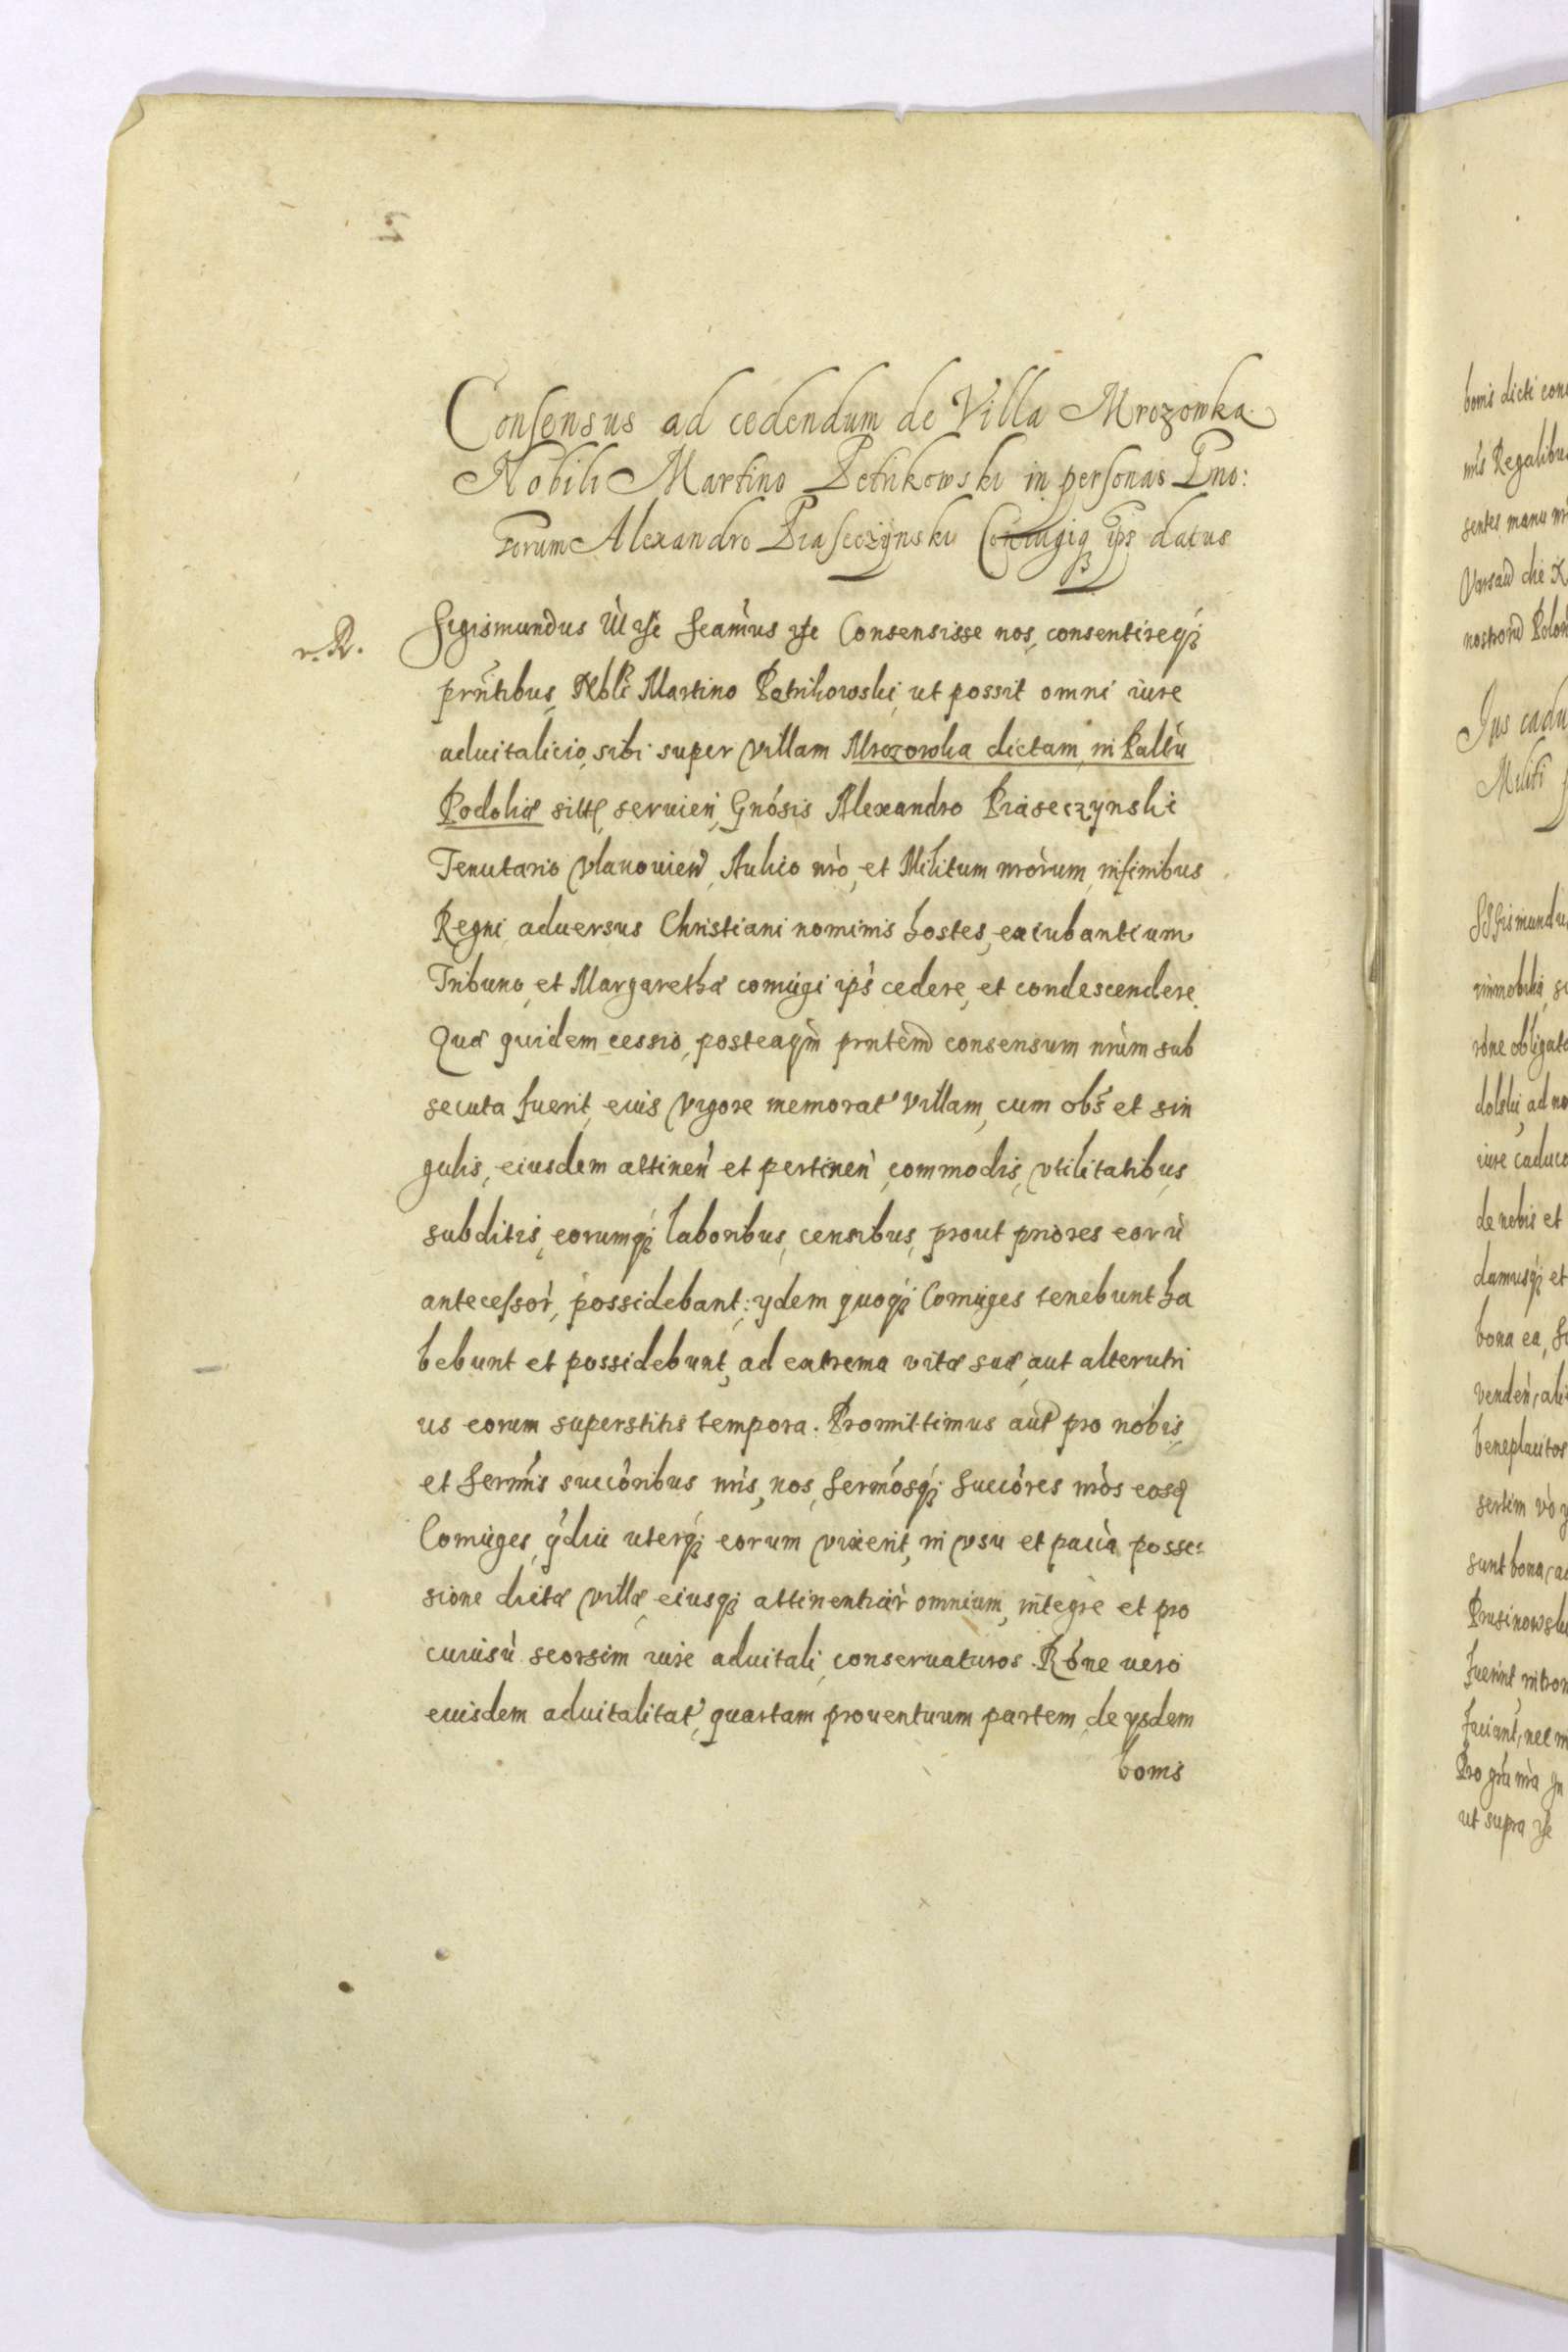 Consensus ad cedendum de Villa Mrozowka
Nobili Martino Petrikowski in personas Gno:
rorum Alexandro Piaseczynski Coniugiq ips datus
r. R.
Sigismundus III etc Seamus etc Consensisse nos, consentireq
prntibus, Nbli Martino Petrikowski, ut possit omni iure
aduitalicio, sibi super villam Mrozowka dictam, in Paltu
Podoliæ sitã, seruien, Gnosis Alexandro Piaseczynski
Tenutario Vlanouien, Aulico nro, et Militum nrorum, in finibus
Regni aduersus Christiani nominis hostes, excubantium
Tribuno, et Margarethæ coniugi ips cedere, et condescendere.
Quæ quidem cessio, posteaqm prntem consensum nrum sub
secuta fuerit, eius vigore memorat villam, cum obs et sin
gulis, eiusdem attinen et pertinen, commodis, vtilitatibus,
subditis, eorumq laboribus, censibus, prout priores eorũ
antecessor, possidebant: ydem quoq Coniuges tenebunt ha
bebunt et possidebunt, ad extrema vitæ suæ, aut alterutri
us eorum superstitis tempora. Promittimus aut pro nobis,
et Sermis succoribus nris, nos, Sermosq Succores nros eosd
Coniuges, qdiu uterq eorum vixerit, in vsu et pacia posses=
sione dictæ villæ, eiusq attinentiar omnium, integre et pro
cuiusũ seorsim iure aduitali, conseruaturos. Rone uero
eiusdem aduitalitat, quartam prouentuum partem, de ysdem
bonis
2
bonis dicti cons
nris Regalibus
sentes manu nr
Varsau die X
nostrorũ Polon
Jus cadu
Militi
Sigismundu
immobilia, s
rone obligat
dolski, ad no
iure caduco
de nobis et
damusq et
bona ea, s
venden, ali
beneplacitos
sertim vo
sunt bona, a
Prusinowski
fuerint, intro
faciant, nec m
Pro gra nra
ut supra etc